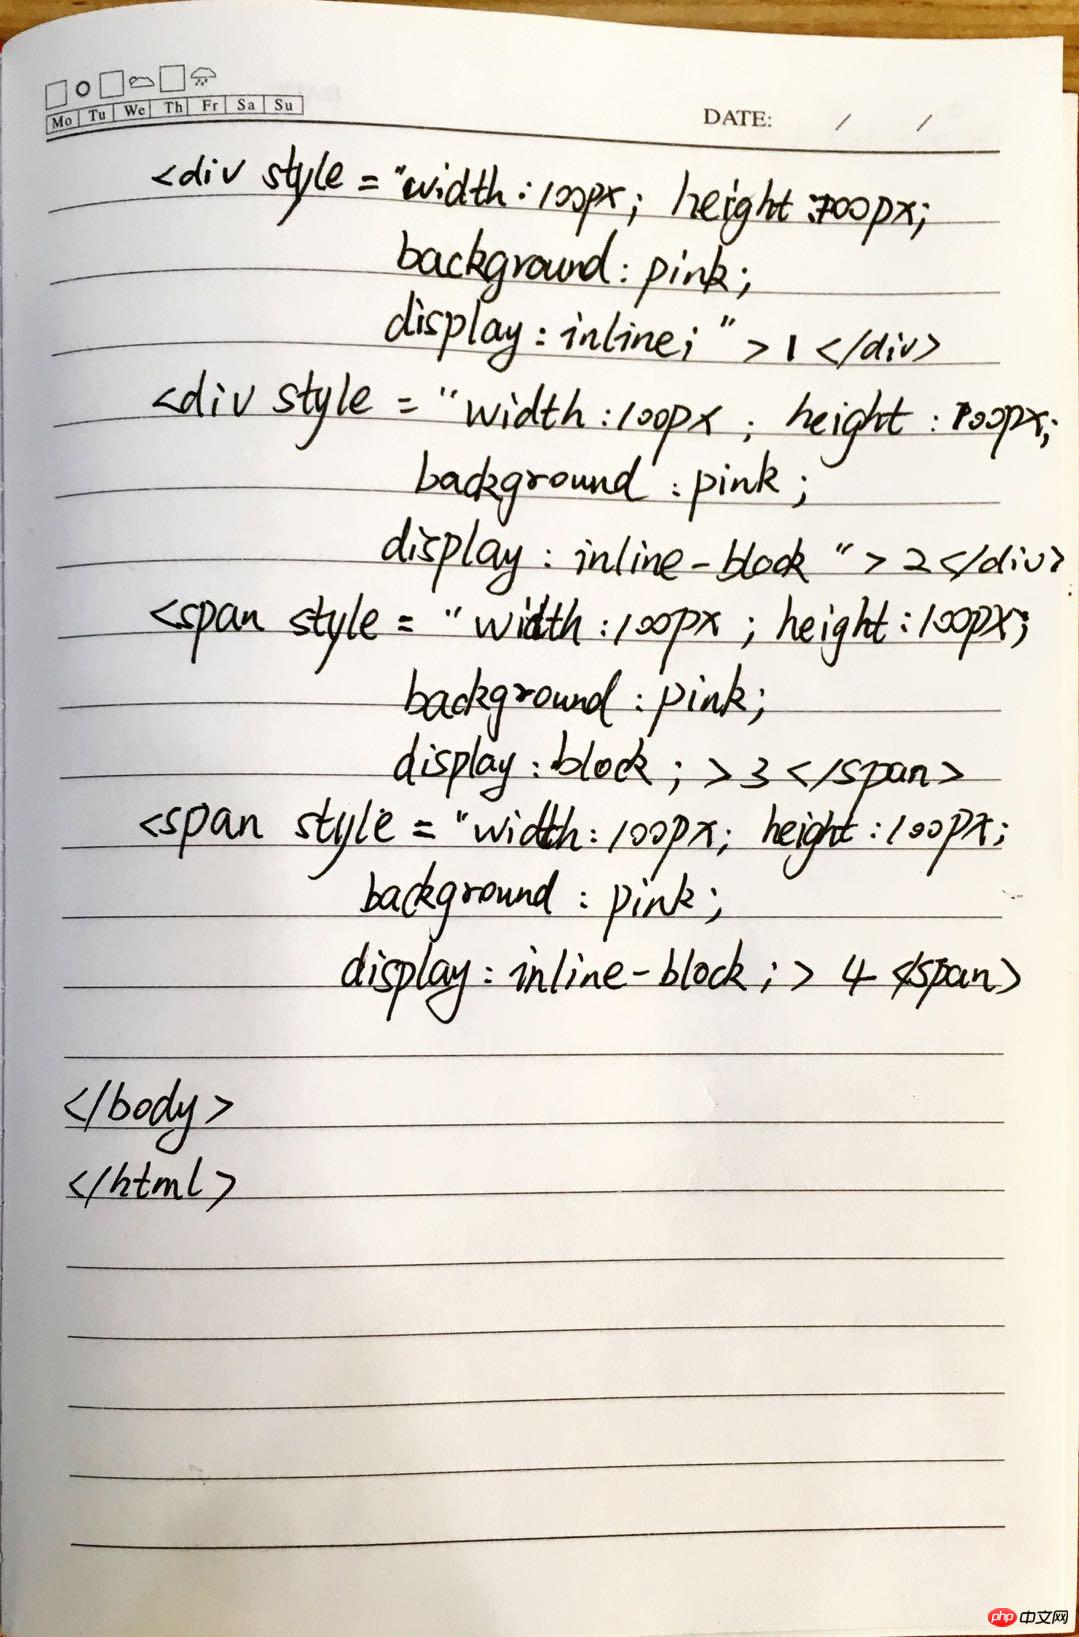 Mo Tu We Th Fr Sa Su
DATE: / /
<div style = "width : 100px ; height :100px ;
background : pink ;
display : inline ; " > 1 </div>
<div style = "width : 100px ; height : 100px ;
background : pink ;
display : inline-block " > 2 </div>
<span style = "width : 100px ; height : 100px ;
background : pink ;
display : block ; > 3 </span>
<span style = "width : 100px ; height : 100px ;
background : pink ;
display : inline-block ; > 4 </span>
</body>
</html>
php 中文网